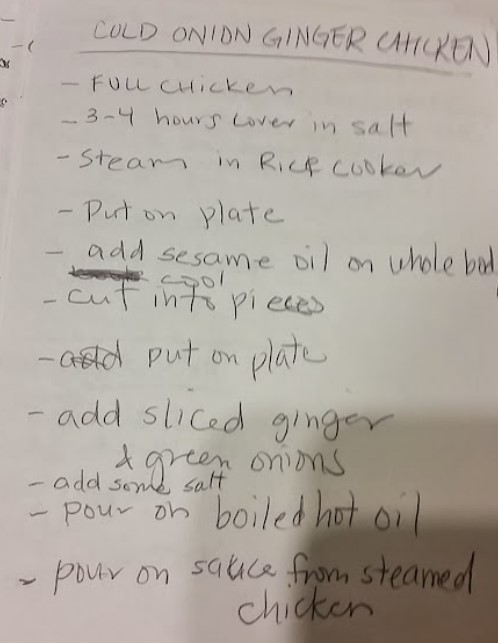 COLD ONION GINGER CHICKEN
- FULL CHICKEN
- 3-4 hours cover in salt
- Steam in RICE cooker
- Put on plate
- add sesame oil on whole bod
cool
- cut into pieces
- put on plate
- add sliced ginger
& green onions
- add some salt
- pour on boiled hot oil
- pour on sauce from steamed
chicken